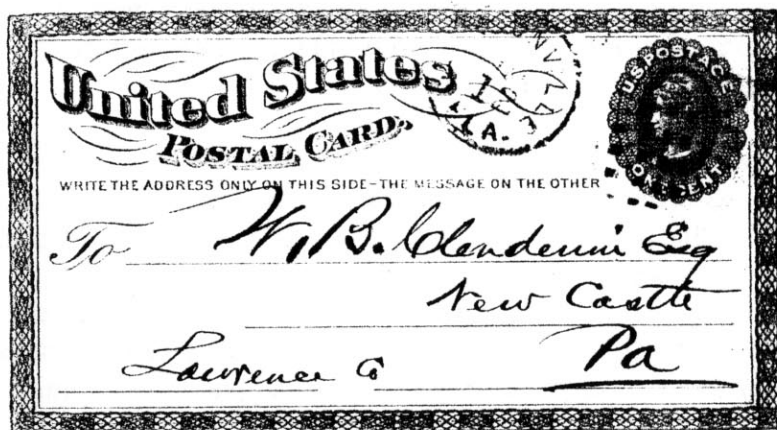 United States
POSTAL CARD.
NV
18
A.
U.S. POSTAGE
ONE CENT
WRITE THE ADDRESS ONLY ON THIS SIDE-THE MESSAGE ON THE OTHER
To W, B. Clendenin Esq
New Castle
Lawrence Co Pa